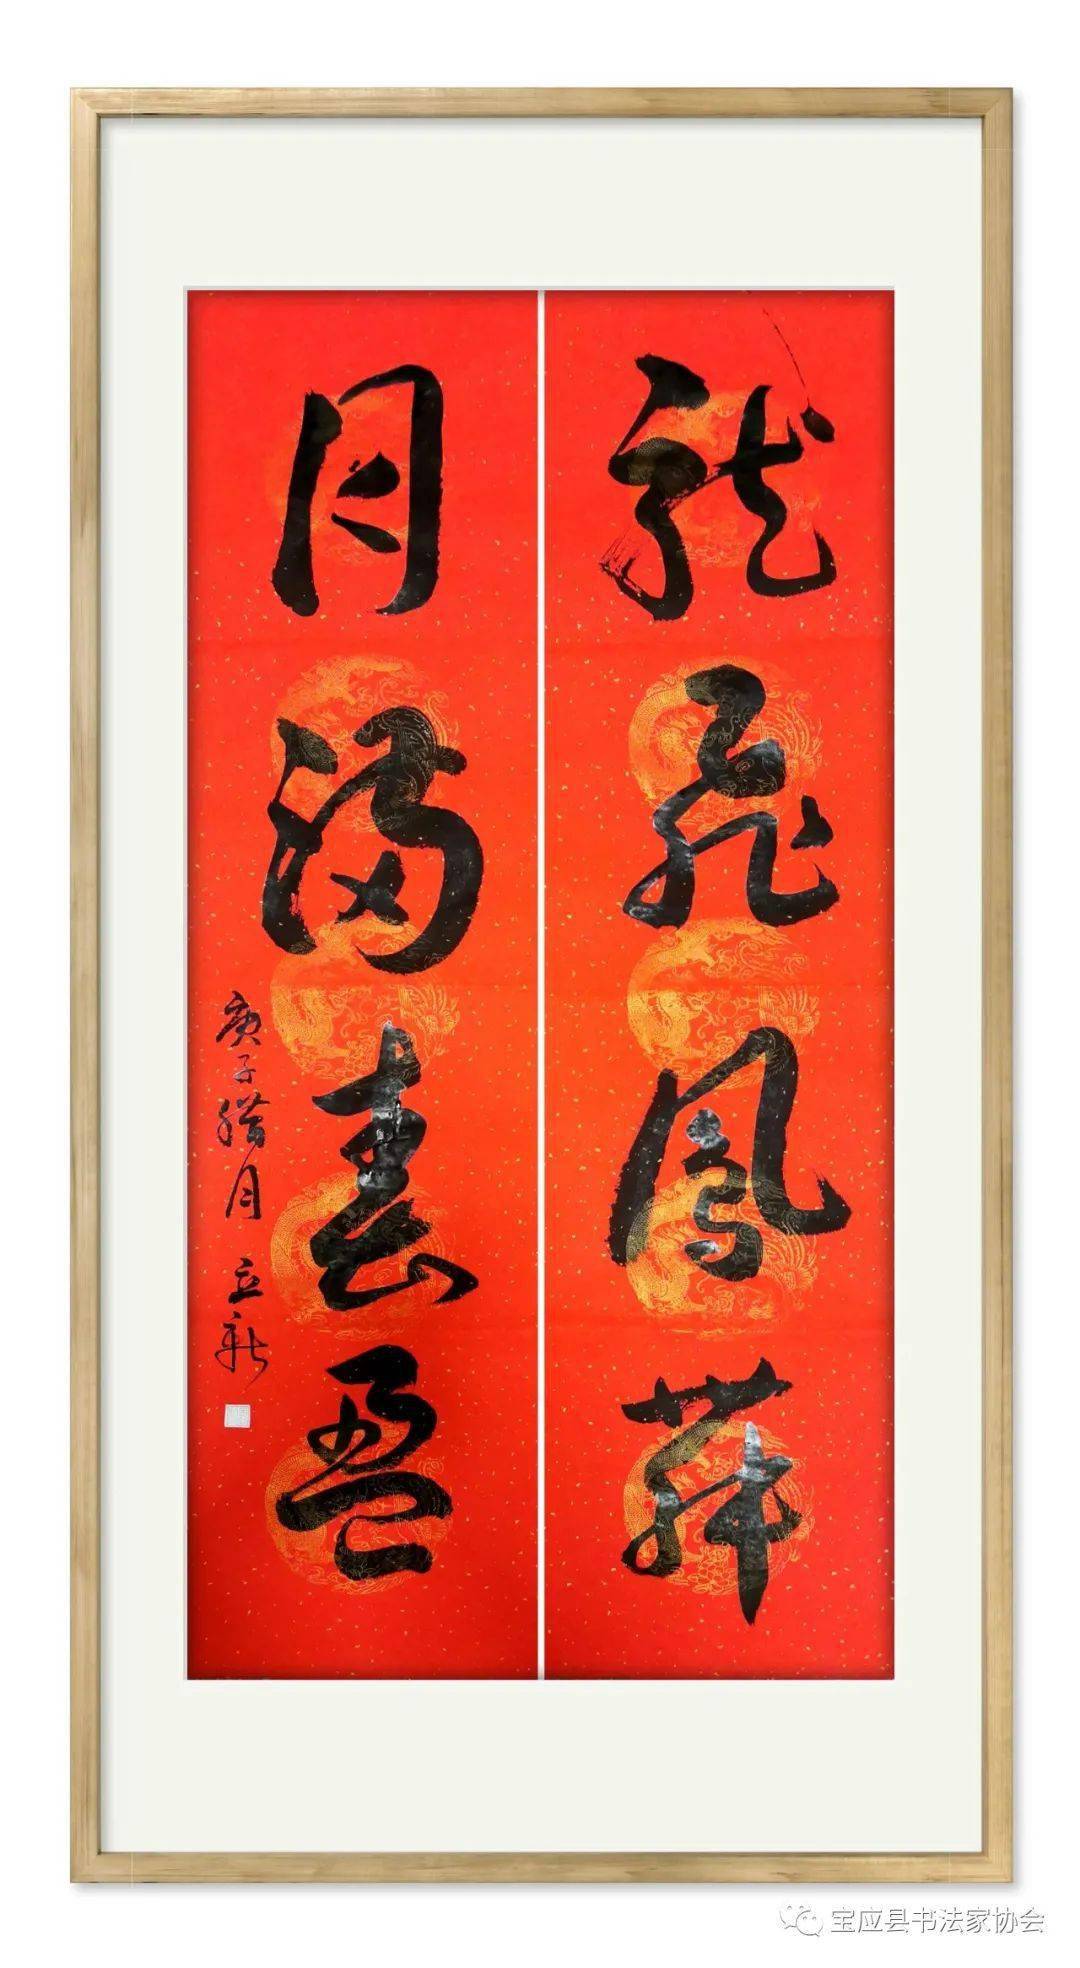 龙飞凤舞
月满春盈
庚子腊月 立新
宝应县书法家协会